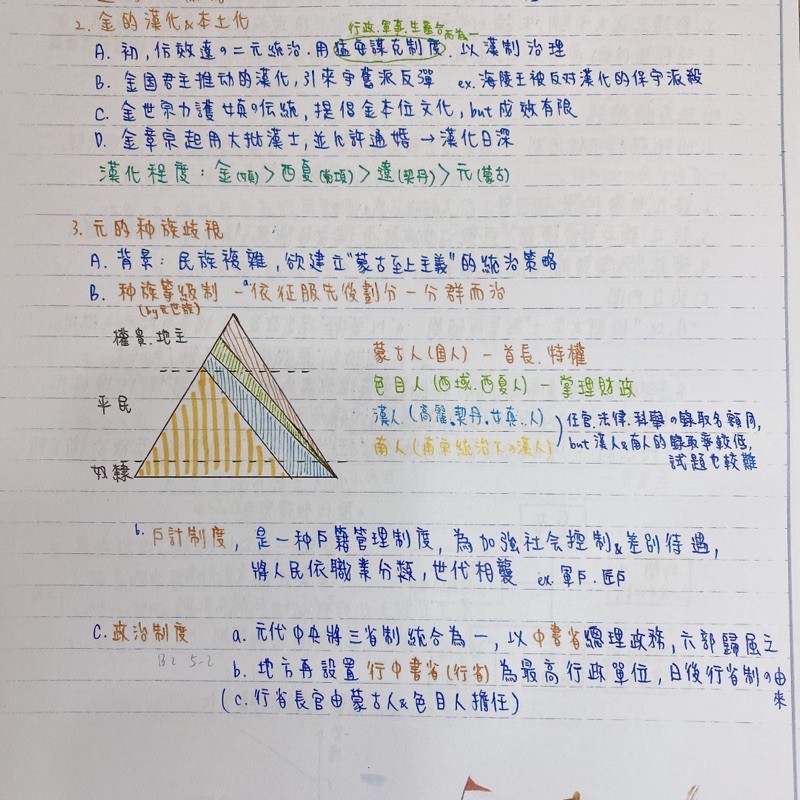 2. 金的漢化&本土化
行政.軍事.生產合而為一
A. 初，仿效遼の二元統治.用猛安謀克制度.以漢制治理
B. 金国君主推动的漢化，引來守舊派反彈 ex.海陵王被反对漢化的保守派殺
C. 金世宗力護女真の伝統，提倡金本位文化，but成效有限
D. 金章宗起用大批漢士，並允許通婚 → 漢化日深
漢化程度：金(女真) > 西夏(党項) > 遼(契丹) > 元(蒙古)
3. 元的种族歧視
A. 背景：民族複雜，欲建立"蒙古至上主義"的統治策略
B. 种族等級制 - a.依征服先後劃分-分群而治
(by忽必烈)
權貴.地主
平民
奴隸
蒙古人(国人) - 首長.特權
色目人(西域.西夏人) - 掌理財政
漢人(高麗.契丹.女真..人)
南人(南宋統治下の漢人)
任官.法律.科舉の錄取名額同，
but漢人&南人的錄取率較低，
試題也較難
b. 戶計制度，是一种戶籍管理制度，為加強社会控制&差別待遇，
將人民依職業分類，世代相襲 ex.軍戶.匠戶
C. 政治制度 a. 元代中央將三省制統合為一，以中書省總理政務，六部歸屬之
B2 5-2
b. 地方再設置行中書省(行省)為最高行政單位，日後行省制の由來
(c. 行省長官由蒙古人&色目人擔任)